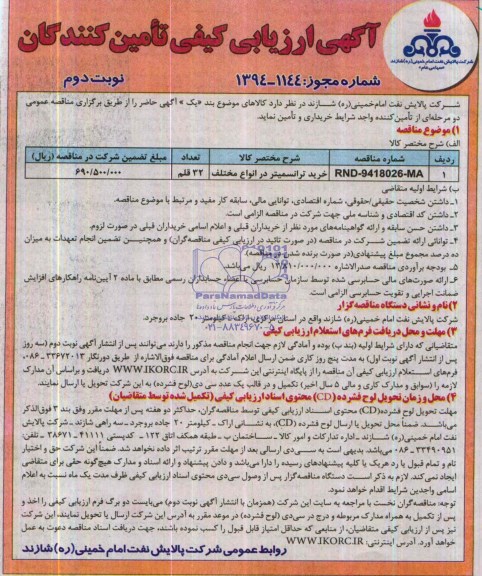 آگهی ارزیابی کیفی تأمین کنندگان
شرکت پالایش نفت امام خمینی(ره) شازند
شماره مجوز: ۱۱۴۴-۱۳۹۴
نوبت دوم
شرکت پالایش نفت امام‌خمینی(ره) شازند در نظر دارد کالاهای موضوع بند «یک» آگهی حاضر را از طریق برگزاری مناقصه عمومی
دو مرحله‌ای از تأمین‌کننده واجد شرایط خریداری و تأمین نماید.
۱) موضوع مناقصه
الف) شرح مختصر کالا
ردیف شماره مناقصه شرح مختصر کالا تعداد مبلغ تضمین شرکت در مناقصه (ریال)
۱ RND-9418026-MA خرید ترانسمیتر در انواع مختلف ۳۲ قلم ۶۹۰/۵۰۰/۰۰۰
ب) شرایط اولیه متقاضی
۱ـ داشتن شخصیت حقیقی/حقوقی، شماره اقتصادی، توانایی مالی، سابقه کار مفید و مرتبط با موضوع مناقصه.
۲ـ داشتن کد اقتصادی و شناسه ملی جهت شرکت در مناقصه الزامی است.
۳ـ داشتن حسن سابقه و ارائه گواهینامه‌های مورد نظر از خریداران قبلی و اعلام اسامی خریداران قبلی در صورت لزوم.
۴ـ توانائی ارائه تضمین شرکت در مناقصه (در صورت تائید در ارزیابی کیفی مناقصه‌گران) و همچنین تضمین انجام تعهدات به میزان
ده درصد مجموع مبلغ پیشنهادی(در صورت برنده شدن در مناقصه)
۵ـ بودجه برآوردی مناقصه صدرالاشاره ۱۳/۸۱۰/۰۰۰/۰۰۰ ریال می‌باشد.
۶ـ ارائه صورت‌های مالی حسابرسی شده توسط سازمان حسابرسی یا اعضاء حسابداران رسمی مطابق با ماده ۲ آیین‌نامه راهکارهای افزایش
ضمانت اجرایی و تقویت حسابرسی الزامی است.
۲) نام و نشانی دستگاه مناقصه‌گزار
شرکت پالایش نفت امام خمینی(ره) شازند واقع در استان مرکزی، اراک، کیلومتر ۲۰ جاده بروجرد.
۳) مهلت و محل دریافت فرم‌های استعلام ارزیابی کیفی
متقاضیانی که دارای شرایط اولیه (بند ب) بوده و آمادگی لازم جهت انجام مناقصه مذکور را دارند می‌توانند پس از انتشار آگهی نوبت دوم (سه روز
پس از انتشار آگهی نوبت اول) به مدت پنج روز کاری ضمن ارسال اعلام آمادگی برای مناقصه فوق‌الاشاره از طریق دورنگار ۳۳۶۷۲۰۱۳-۰۸۶،
فرم‌های استعلام ارزیابی کیفی آن مناقصه را از پایگاه اینترنتی این شرکت به آدرس WWW.IKORC.IR دریافت و براساس آن مدارک
لازمه را (سوابق و مدارک کاری و مالی ۵ سال اخیر) تکمیل و در قالب یک عدد سی دی(لوح فشرده) به این شرکت تحویل یا ارسال نمایند.
۴) محل و زمان تحویل لوح فشرده (CD) محتوی اسناد ارزیابی کیفی (تکمیل شده توسط متقاضیان)
مهلت تحویل لوح فشرده(CD) محتوی اسناد ارزیابی کیفی توسط مناقصه‌گران، حداکثر دو هفته پس از مهلت مقرر وفق بند ۳ فوق‌الذکر
می‌باشد. ضمناً محل تحویل یا ارسال لوح فشرده (CD)، به نشانی اراک - کیلومتر ۲۰ جاده بروجرد - سه راهی شازند - شرکت پالایش
نفت امام خمینی(ره) شازند - اداره تدارکات و امور کالا - ساختمان ب - طبقه همکف اتاق ۱۲۲ - کدپستی ۴۱۱۱۱-۳۸۶۷۱ - تلفن:
۳۳۴۹۰۹۵۱-۰۸۶ می‌باشد. بدیهی است به سی‌دی ارسالی بعد از مهلت مقرر ترتیب اثر داده نخواهد شد. ضمناً این شرکت حق و اختیار
تام و تمام قبول یا رد هریک یا کلیه پیشنهادهای رسیده را دارا می‌باشد و دادن پیشنهاد و ارائه اسناد و مدارک هیچ‌گونه حقی برای متقاضی
ایجاد نمی‌کند. لازم به ذکر است دستگاه مناقصه‌گزار پس از وصول سی‌دی محتوی اسناد ارزیابی کیفی ظرف مدت یک ماه نسبت به اعلام
اسامی واجدین شرایط اقدام خواهد نمود.
توجه: مناقصه‌گران نخست با مراجعه به سایت این شرکت (همزمان با انتشار آگهی نوبت دوم) می‌بایست دو برگ فرم ارزیابی کیفی را اخذ و
پس از تکمیل به همراه مدارک مربوطه و درج در سی‌دی (لوح فشرده) در موعد مقرر به آدرس این شرکت ارسال یا تحویل نمایند، این شرکت
نیز پس از ارزیابی کیفی متقاضیان، از منابعی که حداقل امتیاز قابل قبول را کسب نموده باشند، جهت دریافت اسناد مناقصه دعوت به عمل
خواهد آورد. آدرس اینترنتی: WWW.IKORC.IR
روابط عمومی شرکت پالایش نفت امام خمینی(ره) شازند
ParsNamadData
۰۲۱-۸۸۳۴۹۶۷۰-۵